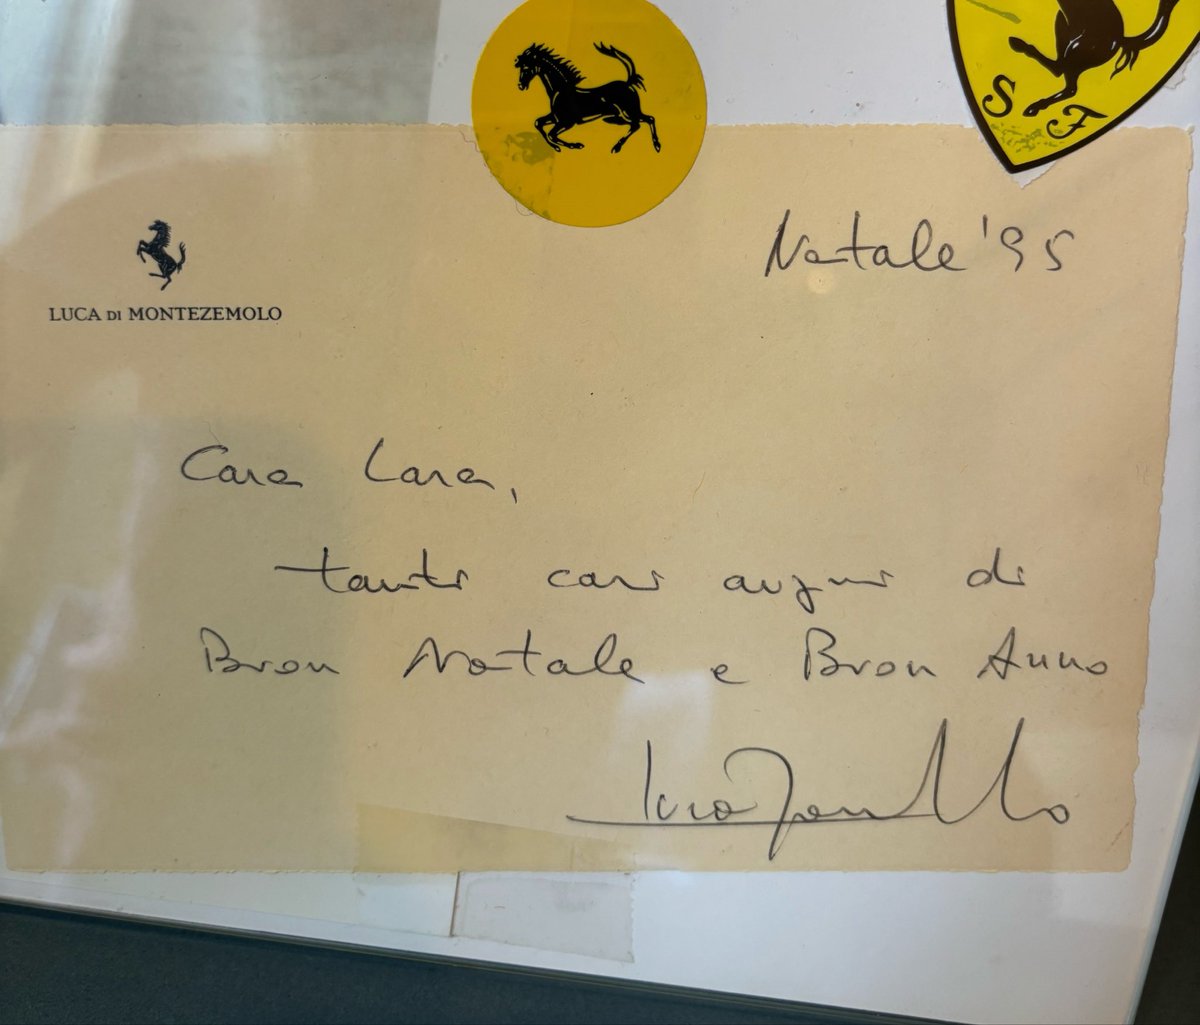 S F
Natale '95
LUCA DI MONTEZEMOLO
Cara Lara,
tanti cari auguri di
Buon Natale e Buon Anno